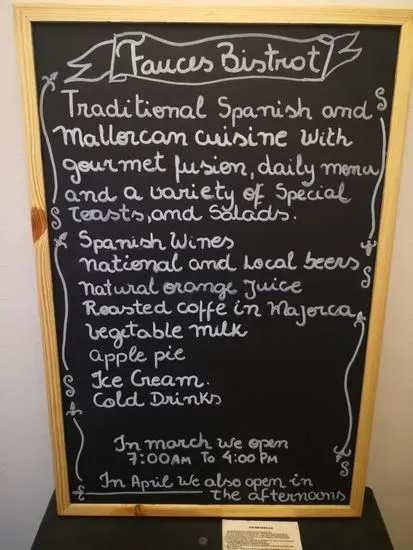 Fauces Bistrot
Traditional Spanish and
Mallorcan cuisine with
gourmet fusion, daily menu
and a variety of Special
Teasts, and Salads.
Spanish Wines
national and Local beers
natural orange Juice
Roasted coffe in Majorca
vegetable milk
apple pie
Ice Cream.
Cold Drinks
In march we open
7:00 AM To 4:00 PM
In April we also open in
the afternoons